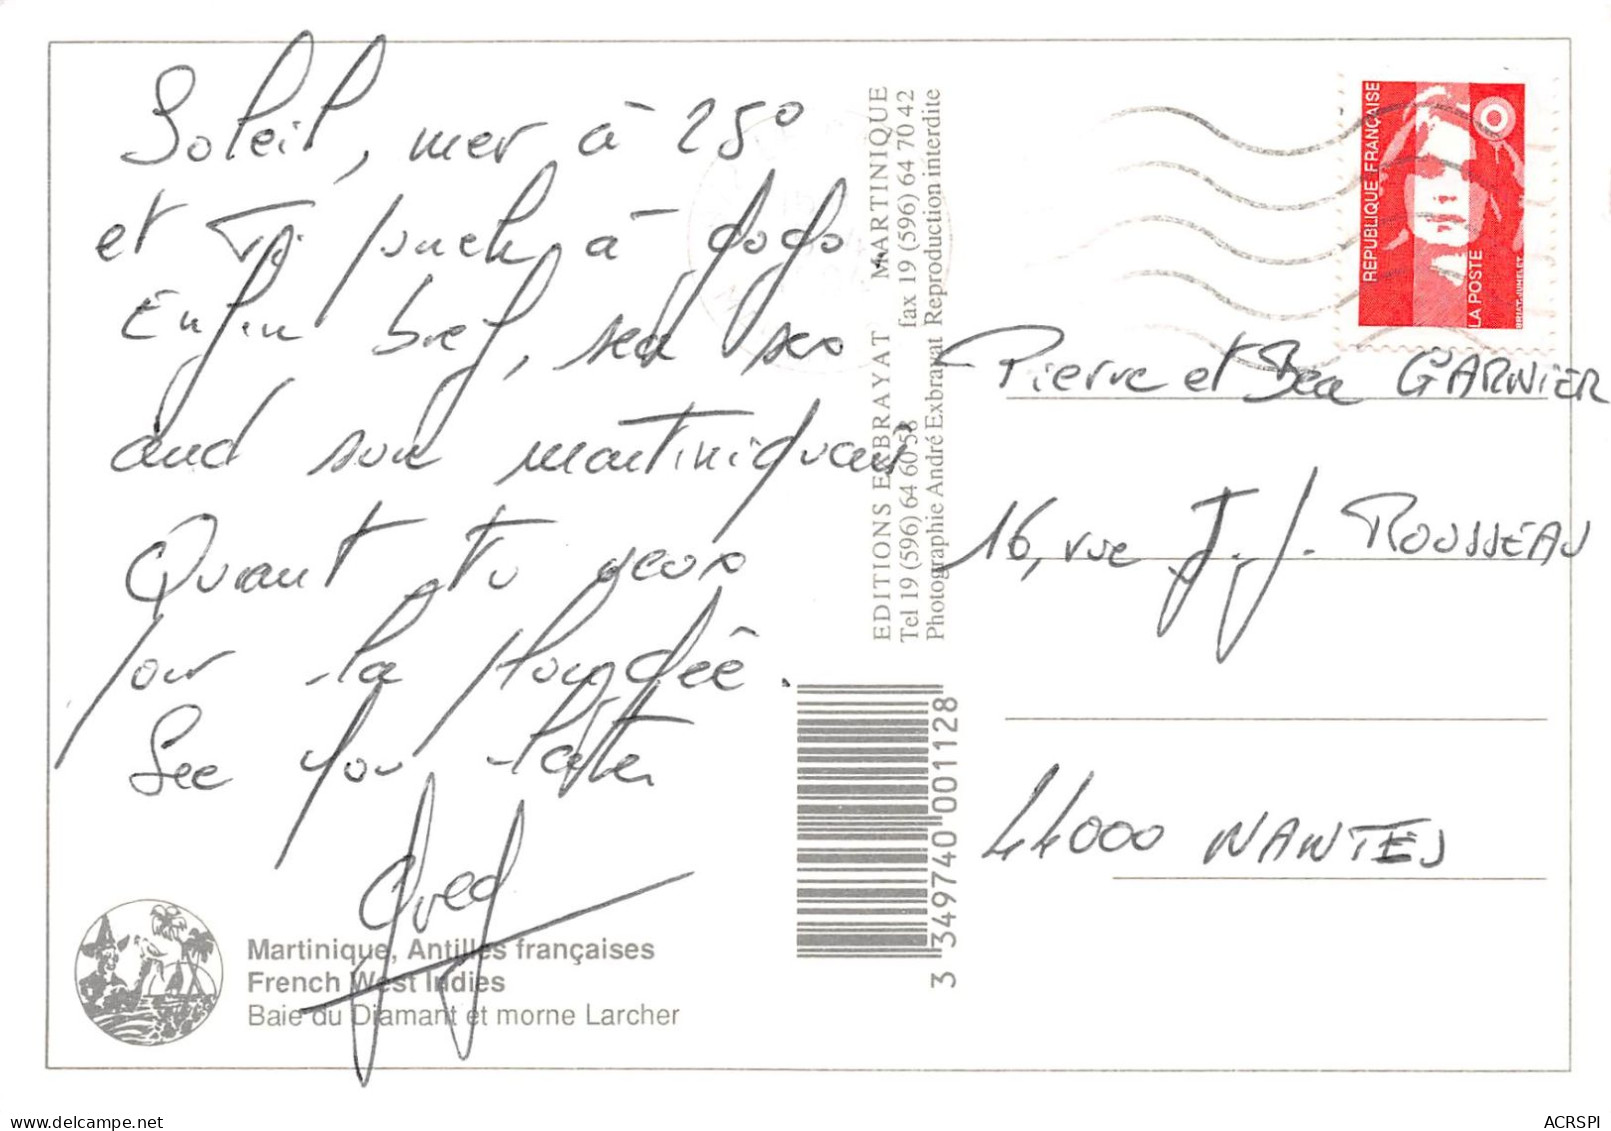 Soleil, mer à 25°
et Ti punch à gogo
Enfin bref, sea sex
and sun martiniquais
Quant tu veux
pour la plongée.
See you later
Gred
Martinique, Antilles françaises
French West Indies
Baie du Diamant et morne Larcher
EDITIONS EXBRAYAT MARTINIQUE
Tel 19 (596) 64 60 58 fax 19 (596) 64 70 42
Photographie André Exbrayat Reproduction interdite
3 349740 001128
REPUBLIQUE FRANÇAISE
LA POSTE
BRIAT-JUMELET
Pierre et Bea GARNIER
16, rue J.J. ROUSSEAU
44000 NANTES
ACRSPI
www.delcampe.net